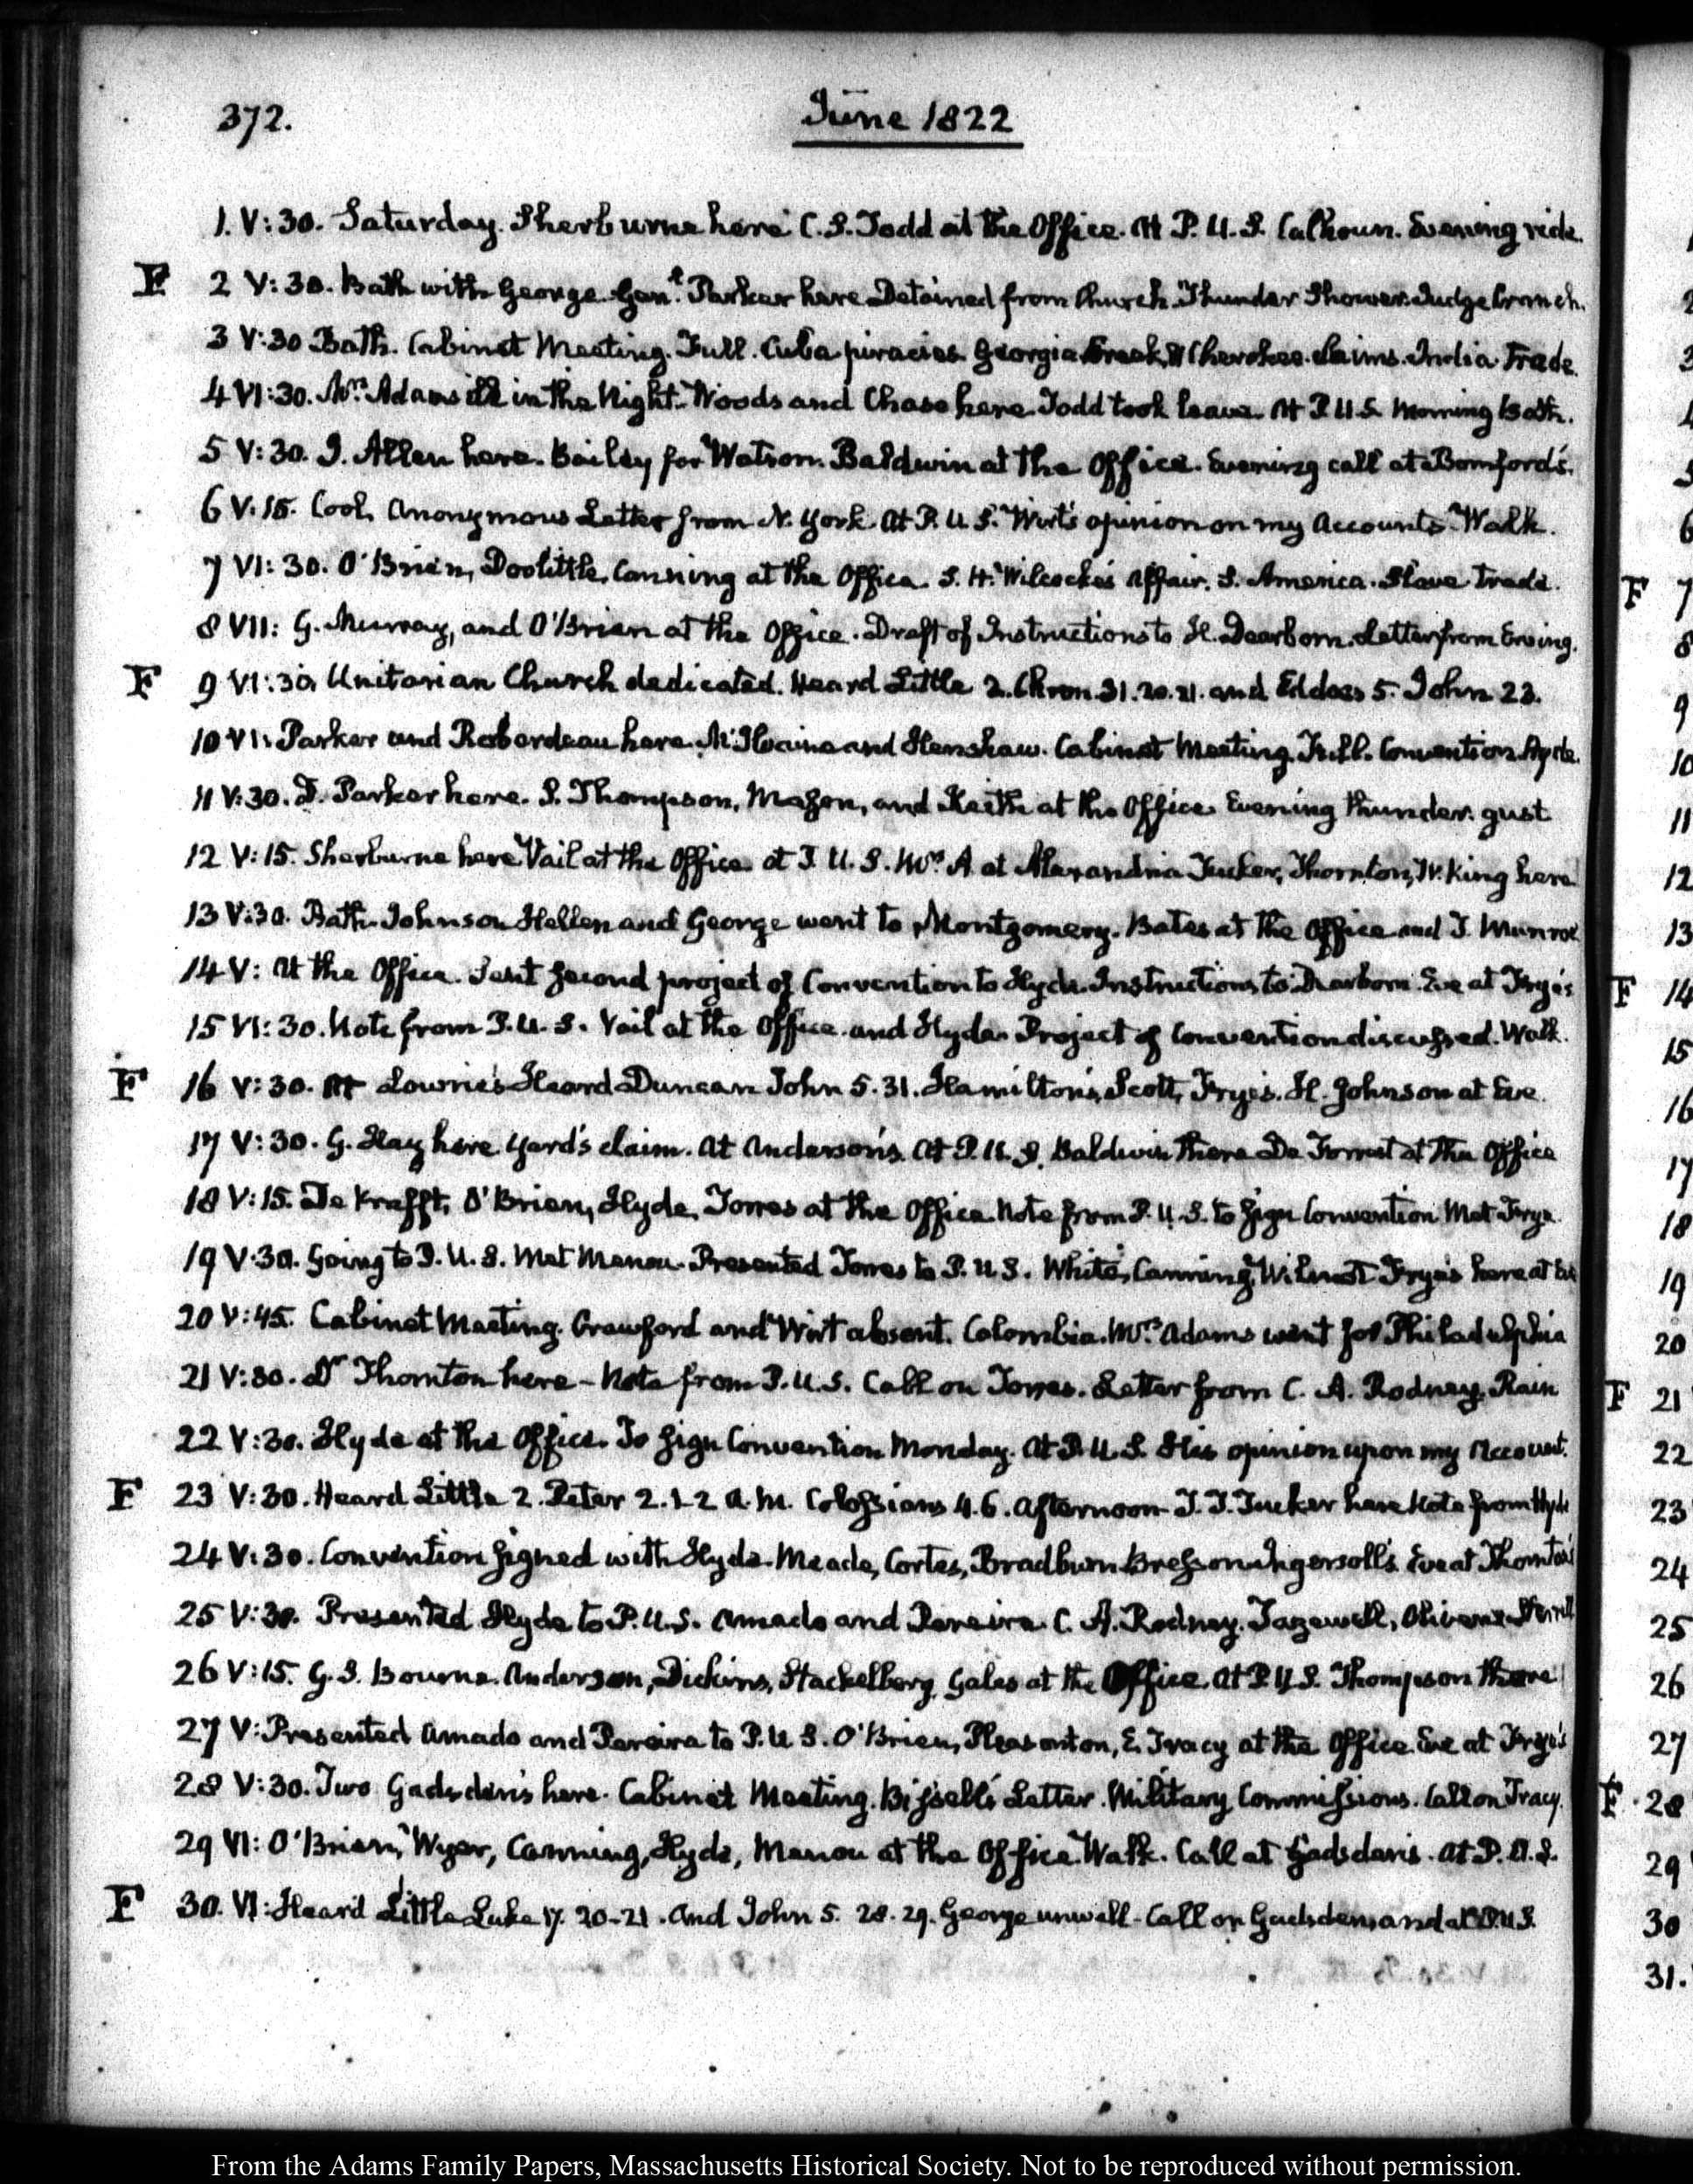 372.
June 1822
1. V:30. Saturday. Sherburne here C. S. Todd at the Office. At P. U. S. Calhoun. Evening ride.
F 2 V:30. Bath with George. Genl. Parker here Detained from Church. Thunder Shower. Judge Cranch.
3 V:30 Bath. Cabinet Meeting. Full. Cuba piracies. Georgia Creek & Cherokee claims. India Trade.
4 VI:30. Mrs. Adams ill in the Night. Woods and Chase here. Todd took leave. At P. U. S. Morning Bath.
5 V:30. J. Allen here. Bailey for Watson. Baldwin at the Office. Evening call at Bomford's.
6 V.15. Cool, Anonymous Letter from N. York. At P. U. S. Wirt's opinion on my Accounts. Walk.
7 VI: 30. O'Brien, Doolittle, Canning at the Office. S. H. Wilcocke's Affair. S. America. Slave Trade.
8 VII: G. Murray, and O'Brien at the Office. Draft of Instructions to H. Dearborn. Letter from Erving.
F 9 VI:30, Unitarian Church dedicated. Heard Little 2. Chron. 31. 20. 21. and Eddoes 5. John 23.
10 VI: Parker and Roberdeau here. McIlvaine and Henshaw. Cabinet Meeting. Full. Convention. Hyde.
11 V:30. D. Parker here. S. Thompson, Mason, and Keith at the Office. Evening thunder. gust
12 V:15. Sherburne here Vail at the Office. at P. U. S. Mrs. A. at Alexandria Tucker, Thornton, W. King here
13 V:30. Bath. Johnson Hellen and George went to Montgomery. Bates at the Office and J. Munroe
14 V: At the Office. Sent second project of Convention to Hyde. Instructions to Dearborn. Eve at Frye's
15 VI:30. Note from P. U. S. Vail at the Office and Hyde. Project of Convention discussed. Walk.
F 16 V:30. At Lowrie's Heard Duncan John 5. 31. Hamilton's, Scott, Frye's. H. Johnson at Eve.
17 V:30. G. Hay here. Yard's claim. At Anderson's. At P. U. S. Baldwin there De Forrest at the Office
18 V:15. De Krafft, O'Brien, Hyde, Torres at the Office Note from P. U. S. to sign Convention Met Frye.
19 V.30. Going to P. U. S. Met Menou. Presented Torres to P. U. S. White, Canning, Wilmot Frye's here at Eve
20 V:45. Cabinet Meeting. Crawford and Wirt absent. Colombia. Mrs. Adams went for Philadelphia
21 V:30. Dr Thornton here - Note from P. U. S. Call on Torres. Letter from C. A. Rodney. Rain
22 V:30. Hyde at the Office. To sign Convention Monday. At P. U. S. His opinion upon my Account.
F 23 V:30. Heard Little 2. Peter 2. 1-2 A. M. Colossians 4. 6. Afternoon J. J. Tucker here Note from Hyde
24 V:30. Convention signed with Hyde. Meade, Cortes, Bradburn Bresson Ingersoll's. Eve at Thornton's
25 V:30. Presented Hyde to P. U. S. Amado and Pereira. C. A. Rodney. Tazewell,
26 V:15. G. S. Bourne. Anderson, Dickins, Stackelberg, Gales at the Office. At P. U. S. Thompson there
27 V: Presented Amado and Pereira to P. U. S. O'Brien, Pleasonton, E. Tracy at the Office. Eve at Frye's
28 V:30. Two Gadsden's here. Cabinet Meeting. Bissell's Letter. Military Commissions. Call on Tracy.
29 VI: O'Brien, Wyer, Canning, Hyde, Menou at the Office. Walk. Call at Gadsden's. At P. U. S.
F 30. VI: Heard Little Luke 17. 20-21. and John 5. 28. 29. George unwell. Call on Gadsden, and at P. U. S.
F 7
8
9
10
11
12
13
F 14
15
16
17
18
19
20
F 21
22
23
24
25
26
27
F 28
29
30
31.
From the Adams Family Papers, Massachusetts Historical Society. Not to be reproduced without permission.